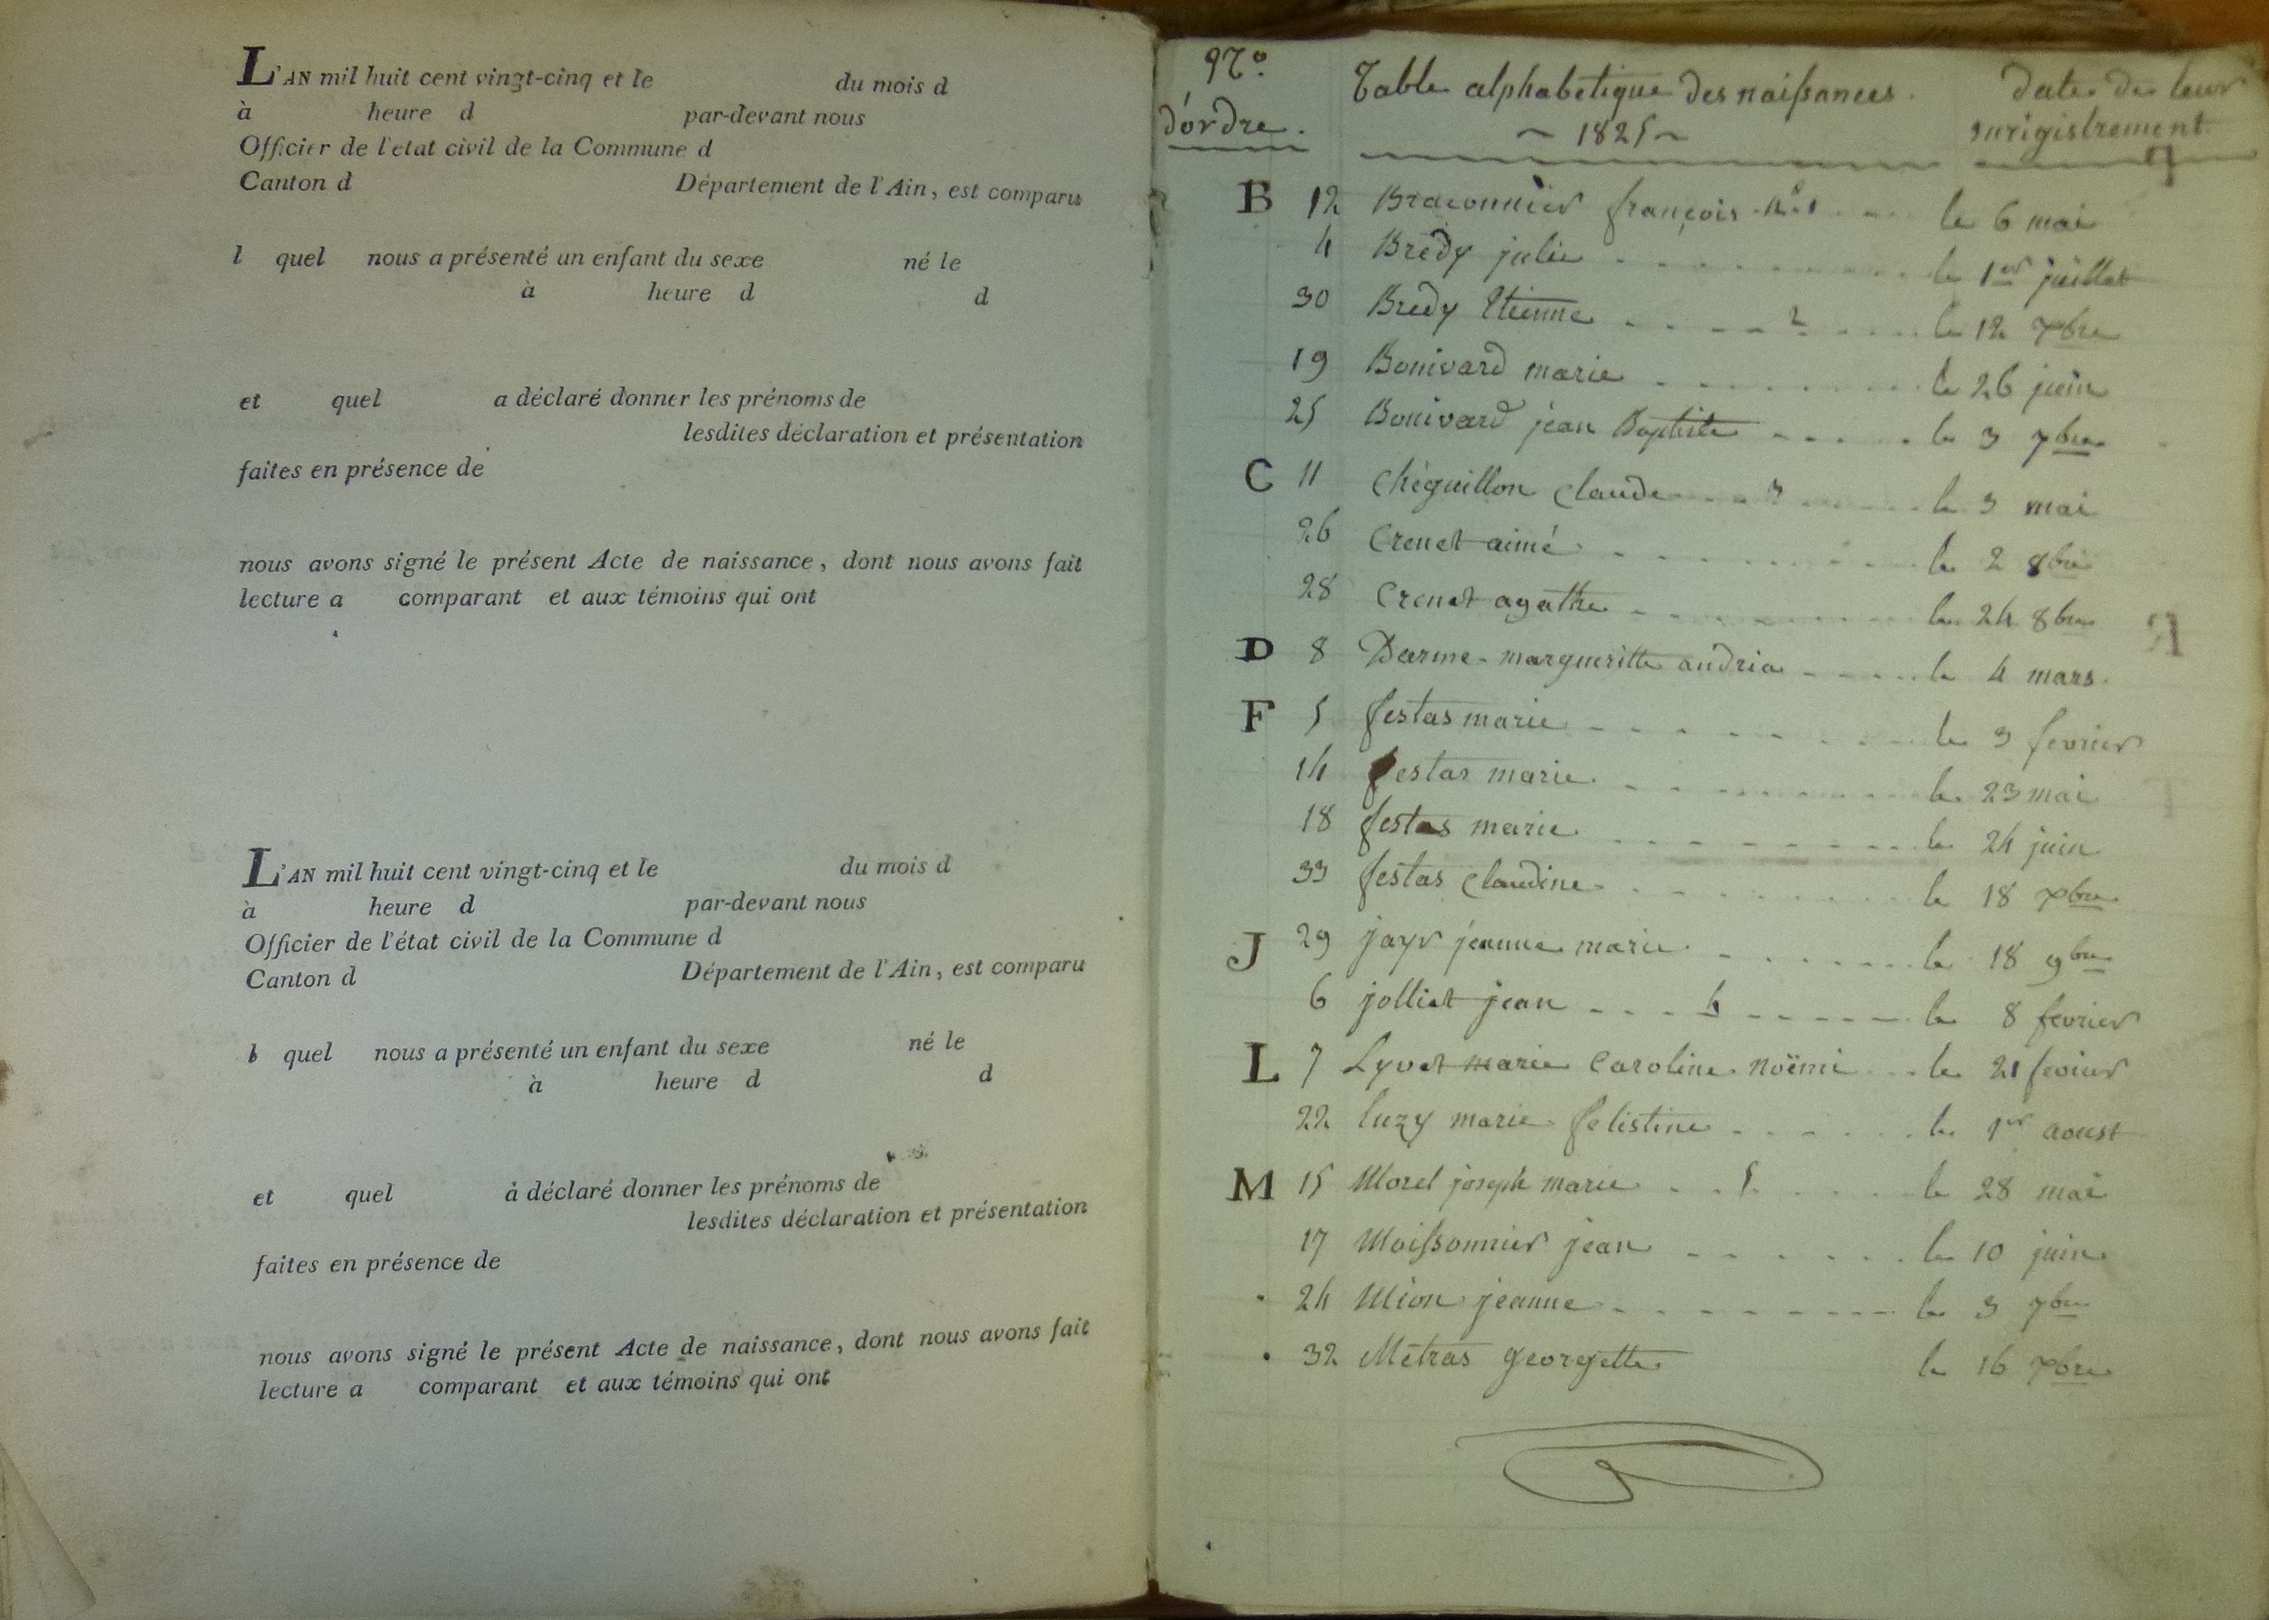 L'AN mil huit cent vingt-cinq et le du mois d
à heure d par-devant nous
Officier de l'état civil de la Commune d
Canton d Département de l'Ain, est comparu
l quel nous a présenté un enfant du sexe né le
à heure d d
et quel a déclaré donner les prénoms de
lesdites déclaration et présentation
faites en présence de
nous avons signé le présent Acte de naissance, dont nous avons fait
lecture a comparant et aux témoins qui ont
L'AN mil huit cent vingt-cinq et le du mois d
à heure d par-devant nous
Officier de l'état civil de la Commune d
Canton d Département de l'Ain, est comparu
l quel nous a présenté un enfant du sexe né le
à heure d d
et quel à déclaré donner les prénoms de
lesdites déclaration et présentation
faites en présence de
nous avons signé le présent Acte de naissance, dont nous avons fait
lecture a comparant et aux témoins qui ont
No. Table alphabetique des naissances date de leur
d'ordre. ~ 1825 ~ enrigistrement
B 12 Braconnier françois n° 1 le 6 mai
4 Bredy julie le 1er juillet
30 Bredy Etienne 2 le 12 xbre
19 Bonivard marie le 26 juin
25 Bonivard jean Baptiste le 3 7bre
C 11 Chéguillon Claude 3 le 3 mai
26 Crenet aimé le 2 8bre
28 Crenet agathe le 24 8bre
D 8 Darme margueritte andria le 4 mars
F 5 festas marie le 3 fevrier
14 festas marie le 23 mai
18 festas marie le 24 juin
33 festas Claudine le 18 xbre
J 29 jayr jeanne marie le 18 9bre
6 jolliet jean 4 le 8 fevrier
L 7 Lyvet marie Caroline noëmi le 21 fevrier
22 luzy marie felistine le 1er aoust
M 15 Morel joseph marie 5 le 28 mai
17 Moissonnier jean le 10 juin
24 Mion jeanne le 3 7bre
32 Métras georgette le 16 xbre